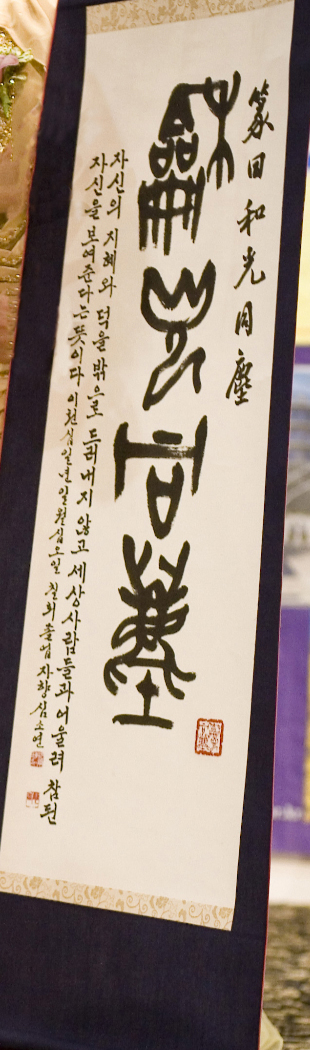 篆曰和光同塵
龢光同塵
자신의 지혜와 덕을 밖으로 드러내지 않고 세상사람들과 어울려 참된
자신을 보여준다는 뜻이다 이천십일년일월십오일 칠회졸업 자향 심소연